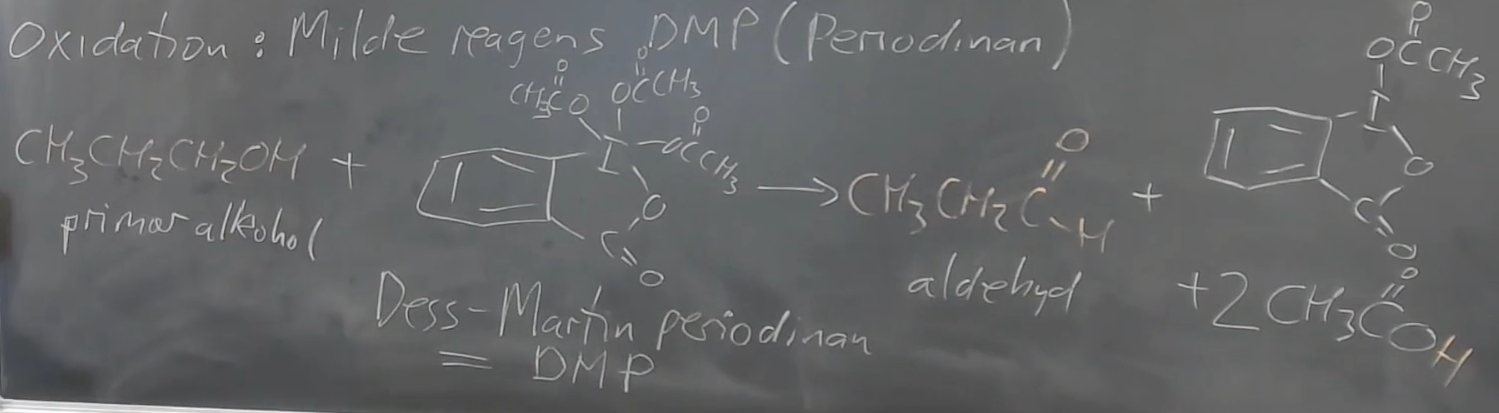 Oxidation : Milde reagens DMP (Periodinan)
CH₃CH₂CH₂OH +
primær alkohol
CH₃CO
O
OCCH₃
O
I
OCCH₃
O
O
C
O
→ CH₃CH₂C
O
H
+
aldehyd
OCCH₃
O
I
O
C
O
+ 2 CH₃COH
O
Dess-Martin periodinan
= DMP